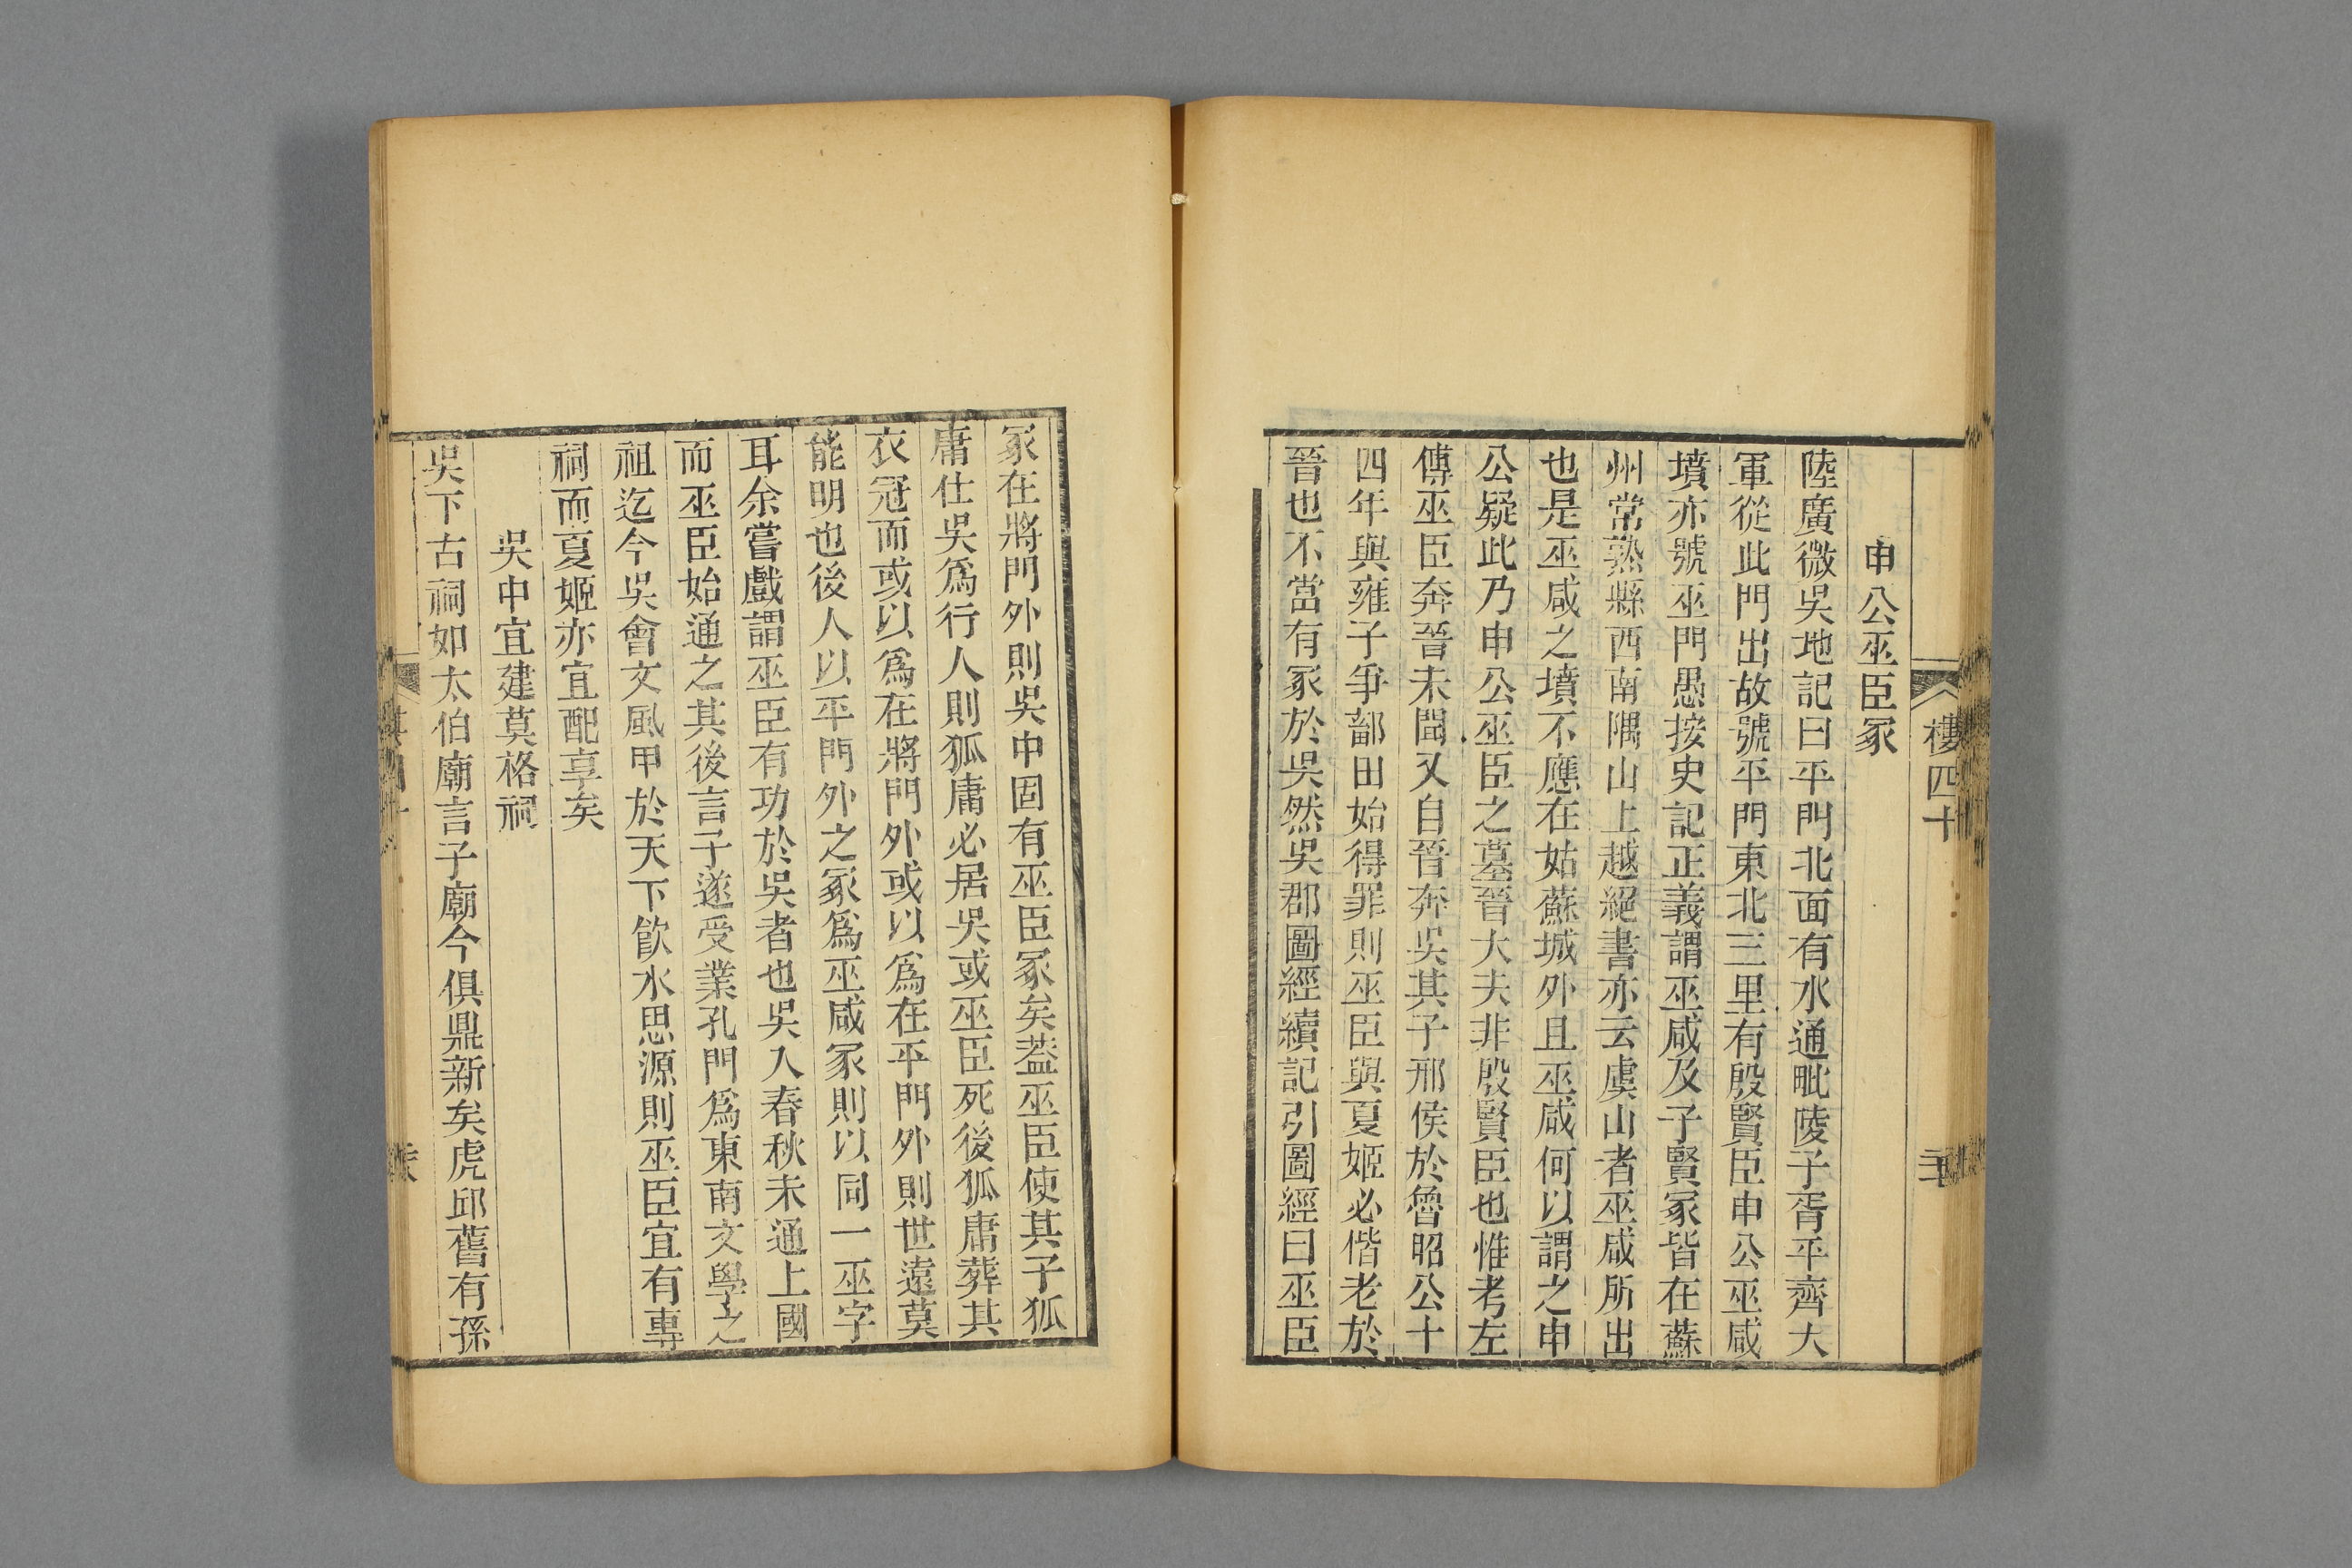 樓四十
申公巫臣冢
陸廣微吳地記曰平門北面有水通毗陵子胥平齊大
軍從此門出故號平門東北三里有殷賢臣申公巫咸
墳亦號巫門愚按史記正義謂巫咸及子賢冢皆在蘇
州常熟縣西南隅山上越絕書亦云虞山者巫咸所出
也是巫咸之墳不應在姑蘇城外且巫咸何以謂之申
公疑此乃申公巫臣之墓晉大夫非殷賢臣也惟考左
傳巫臣奔晉未聞又自晉奔吳其子邢侯於魯昭公十
四年與雍子爭鄐田始得罪則巫臣與夏姬必偕老於
晉也不當有冢於吳然吳郡圖經續記引圖經曰巫臣
冢在將門外則吳中固有巫臣冢矣葢巫臣使其子狐
庸仕吳爲行人則狐庸必居吳或巫臣死後狐庸葬其
衣冠而或以爲在將門外或以爲在平門外則世遠莫
能明也後人以平門外之冢爲巫咸冢則以同一巫字
耳余嘗戲謂巫臣有功於吳者也吳入春秋未通上國
而巫臣始通之其後言子遂受業孔門爲東南文學之
祖迄今吳會文風甲於天下飮水思源則巫臣宜有專
祠而夏姬亦宜配享矣
吳中宜建莫格祠
吳下古祠如太伯廟言子廟今俱鼎新矣虎邱舊有孫